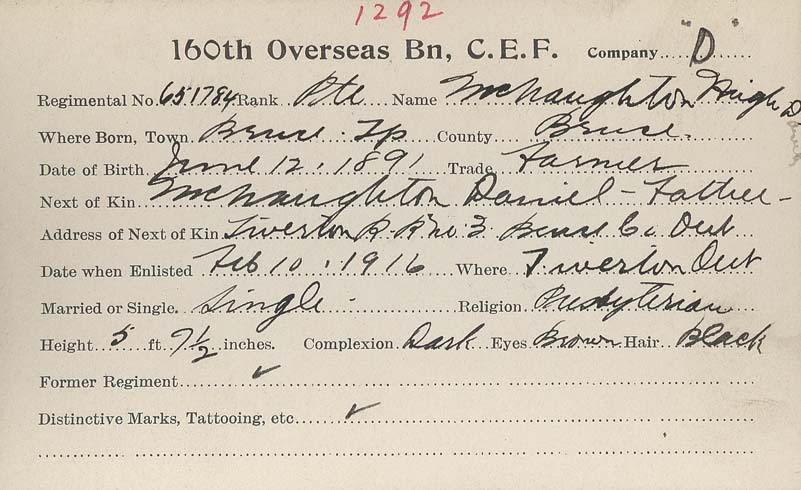 1292
160th Overseas Bn, C.E.F. Company "D"
Regimental No. 651784 Rank Pte Name McNaughton Hugh D
Where Born, Town Bruce Tp County Bruce.
Date of Birth June 12, 1891 Trade Farmer
Next of Kin McNaughton Daniel - Father -
Address of Next of Kin Tiverton R R no 3 Bruce Co Ont
Date when Enlisted Feb 10, 1916 Where Tiverton Ont
Married or Single. Single - Religion Presbyterian
Height 5 ft. 9½ inches. Complexion Dark Eyes Brown Hair Black
Former Regiment ✓
Distinctive Marks, Tattooing, etc ✓